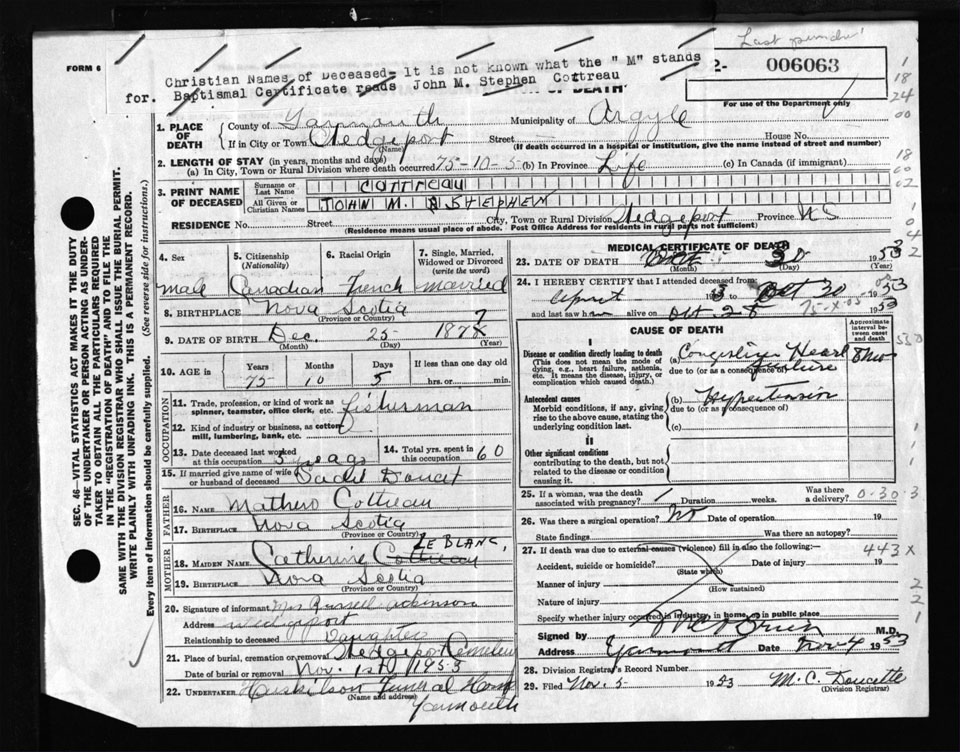 Last
FORM 6
Christian Names of Deceased- It is not known what the "M" stands
for. Baptismal Certificate reads John M. Stephen Cottreau
OF DEATH
2- 006063
For use of the Department only
1. PLACE OF DEATH
County of Yarmouth Municipality of Argyle
If in City or Town Wedgeport Street House No.
(Name) (If death occurred in a hospital or institution, give the name instead of street and number)
2. LENGTH OF STAY (in years, months and days)
(a) In City, Town or Rural Division where death occurred 75-10-5 (b) In Province Life (c) In Canada (if immigrant)
3. PRINT NAME OF DECEASED
Surname or Last Name COTTREAU
All Given or Christian Names JOHN M. STEPHEN
RESIDENCE No. Street City, Town or Rural Division Wedgeport Province N S
(Residence means usual place of abode. Post Office Address for residents in rural parts not sufficient)
4. Sex male
5. Citizenship (Nationality) Canadian
6. Racial Origin French
7. Single, Married, Widowed or Divorced (write the word) married
8. BIRTHPLACE Nova Scotia
(Province or Country)
9. DATE OF BIRTH Dec. 25 187
(Month) (Day) (Year)
10. AGE is Years Months Days If less than one day old
75 10 5 hrs. or min.
OCCUPATION
11. Trade, profession, or kind of work as spinner, teamster, office clerk, etc. fisherman
12. Kind of industry or business, as cotton mill, lumbering, bank, etc.
13. Date deceased last worked at this occupation 5 years
14. Total yrs. spent in this occupation 60
15. If married give name of wife or husband of deceased Doucet
FATHER
16. NAME Cottreau
17. BIRTHPLACE Nova Scotia
(Province or Country)
MOTHER
LE BLANC,
18. MAIDEN NAME Catherine Cottreau
19. BIRTHPLACE Nova Scotia
(Province or Country)
20. Signature of informant Mrs Russell
Address Wedgeport
Relationship to deceased Daughter
21. Place of burial, cremation or removal Wedgeport
Date of burial or removal Nov. 1st 1953
22. UNDERTAKER Funeral Home
(Name and address)
Yarmouth
MEDICAL CERTIFICATE OF DEATH
23. DATE OF DEATH Oct 30 1953
(Month) (Day) (Year)
24. I HEREBY CERTIFY that I attended deceased from
Oct 30 1953
and last saw h alive on Oct 28 1953
CAUSE OF DEATH
Approximate interval between onset and death
I
Disease or condition directly leading to death
(This does not mean the mode of dying, e.g., heart failure, asthenia, etc. It means the disease, injury, or complication which caused death.)
(a) Congestive Heart
due to (or as a consequence of) failure
Antecedent causes
Morbid conditions, if any, giving rise to the above cause, stating the underlying condition last.
(b) Hypertension
due to (or as a consequence of)
(c)
II
Other significant conditions
contributing to the death, but not related to the disease or condition causing it.
25. If a woman, was the death associated with pregnancy? Duration weeks. Was there a delivery?
0-30-3
26. Was there a surgical operation? no Date of operation 19
State findings Was there an autopsy?
27. If death was due to external causes (violence) fill in also the following:-
443 X
Accident, suicide or homicide? Date of injury 19
(State which)
Manner of injury
(How sustained)
Nature of injury
Specify whether injury occurred in industry, in home, or in public place
Signed by M.D.
Address Yarmouth Date Nov 4 1953
28. Division Registrar's Record Number
29. Filed Nov. 5 1953 M. C. Doucette
(Division Registrar)
SEC. 46—VITAL STATISTICS ACT MAKES IT THE DUTY
OF THE UNDERTAKER OR PERSON ACTING AS UNDER-
TAKER TO OBTAIN ALL THE PARTICULARS REQUIRED
IN THE "REGISTRATION OF DEATH" AND TO FILE THE
SAME WITH THE DIVISION REGISTRAR WHO SHALL ISSUE THE BURIAL PERMIT.
WRITE PLAINLY WITH UNFADING INK. THIS IS A PERMANENT RECORD.
Every item of information should be carefully supplied. (See reverse side for instructions.)